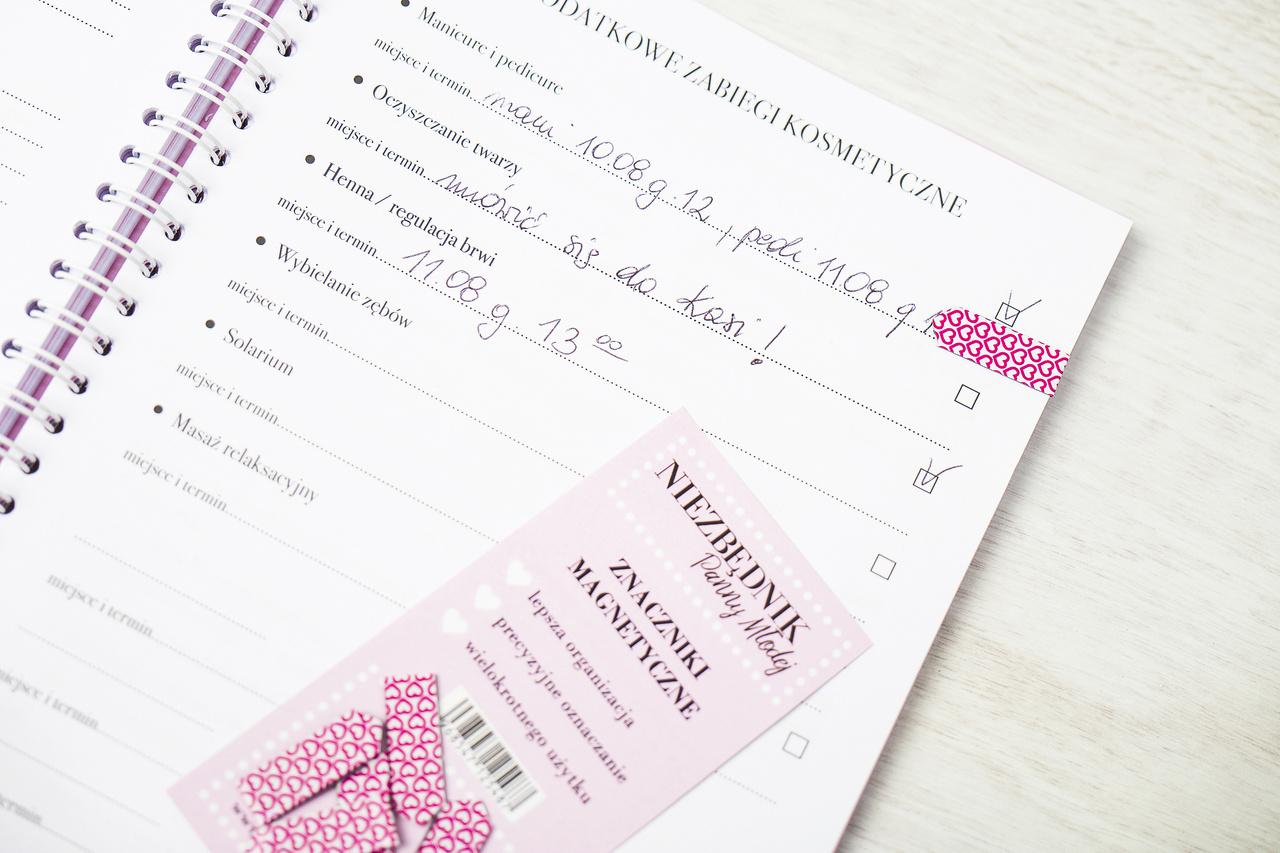 ODATKOWE ZABIEGI KOSMETYCZNE
Manicure i pedicure
miejsce i termin mani 10.08 g 12, pedi 11.08 g
Oczyszczanie twarzy
miejsce i termin umówić się do Kasi!
Henna / regulacja brwi
miejsce i termin 11.08 g 13 00
Wybielanie zębów
miejsce i termin
Solarium
miejsce i termin
Masaż relaksacyjny
miejsce i termin
miejsce i termin
miejsce i termin
termin
NIEZBĘDNIK
Panny Młodej
ZNACZNIKI
MAGNETYCZNE
lepsza organizacja
precyzyjne oznaczanie
wielokrotnego użytku